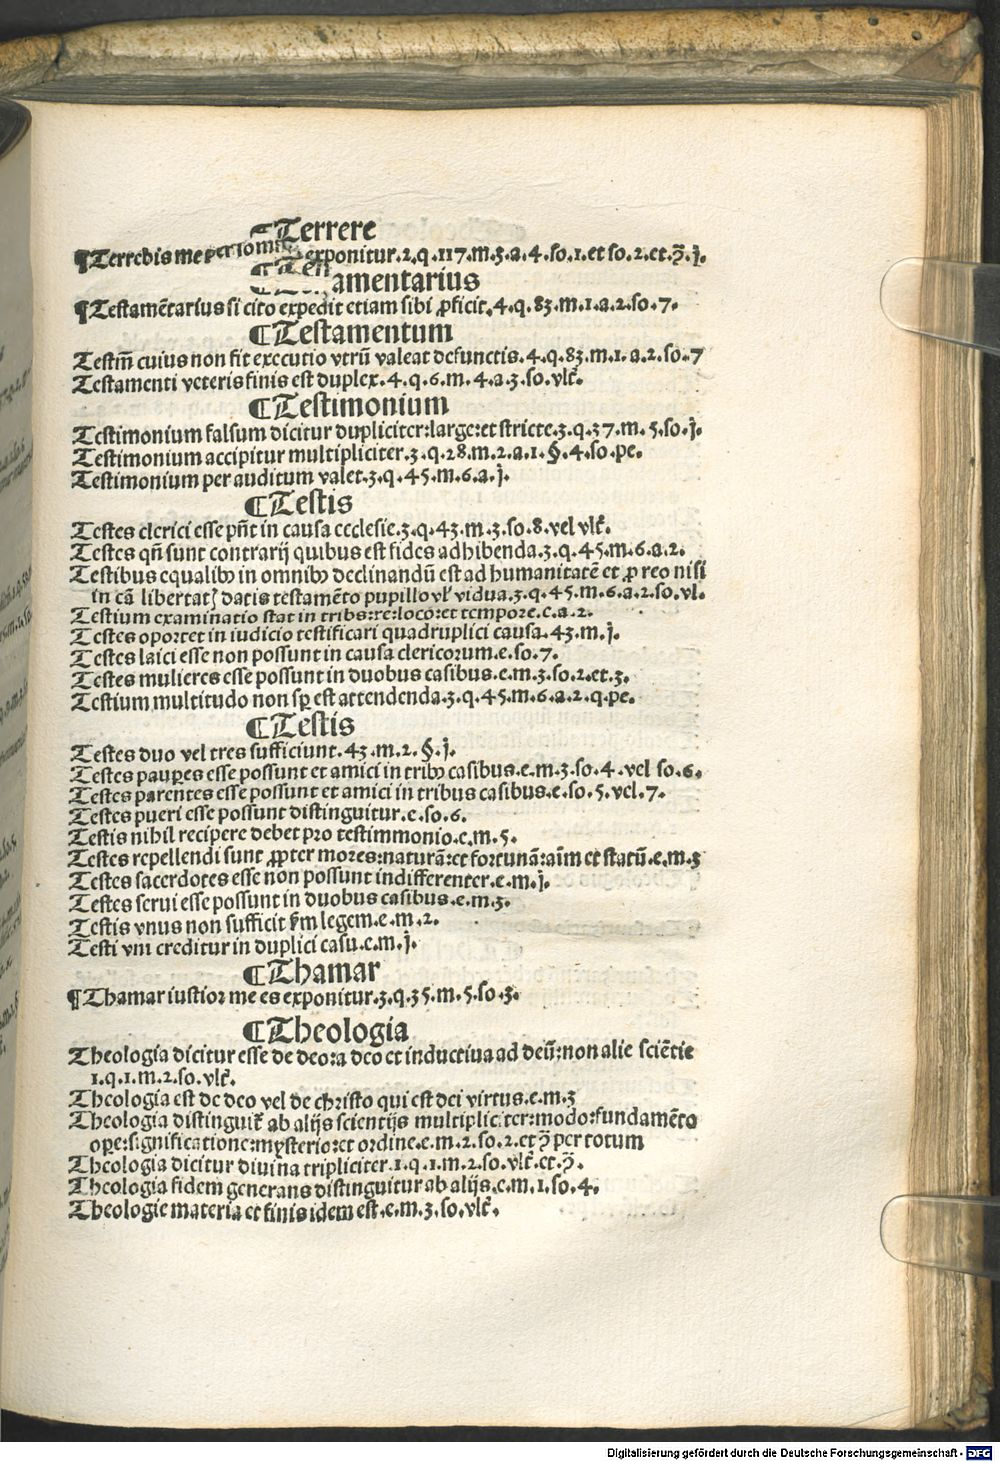 ¶Terrere
¶Terrebis me per somnia exponitur.2.q.117.m.3.a.4.so.1.et so.2.et.ꝯ̄.j.
¶Testamentarius
¶Testamētarius si cito expedit etiam sibi ꝓficit.4.q.83.m.1.a.2.so.7.
¶Testamentum
Testm̄ cuius non fit executio vtrū valeat defunctis.4.q.83.m.1.a.2.so.7
Testamenti veteris finis est duplex.4.q.6.m.4.a.3.so.vlt̄.
¶Testimonium
Testimonium falsum dicitur dupliciter:large:et stricte.3.q.37.m.5.so.j.
Testimonium accipitur multipliciter.3.q.28.m.2.a.1.§.4.so.pe.
Testimonium per auditum valet.3.q.45.m.6.a.j.
¶Testis
Testes clerici esse pn̄t in causa ecclesie.3.q.43.m.3.so.8.vel vlt̄.
Testes qn̄ sunt contrarij quibus est fides adhibenda.3.q.45.m.6.a.2.
Testibus equalibꝫ in omnibꝫ declinandū est ad humanitatē et ꝓ reo nisi
in cā libertatꝭ datis testamēto pupillo vl̄ vidua.3.q.45.m.6.a.2.so.vl.
Testium examinatio stat in tribs:re:loco:et tempore.e.a.2.
Testes oportet in iudicio testificari quadruplici causa.43.m.j.
Testes laici esse non possunt in causa clericorum.e.so.7.
Testes mulieres esse possunt in duobus casibus.e.m.3.so.2.et.3.
Testium multitudo non sꝑ est attendenda.3.q.45.m.6.a.2.q.pe.
¶Testis
Testes duo vel tres sufficiunt.43.m.2.§.j.
Testes pauꝑes esse possunt et amici in tribꝫ casibus.e.m.3.so.4.vel so.6.
Testes parentes esse possunt et amici in tribus casibus.e.so.5.vel.7.
Testes pueri esse possunt distinguitur.e.so.6.
Testis nihil recipere debet pro testimmonio.e.m.5.
Testes repellendi sunt ꝓpter mores:naturā:et fortunā:aīm et statū.e.m.3
Testes sacerdotes esse non possunt indifferenter.e.m.j.
Testes serui esse possunt in duobus casibus.e.m.3.
Testis vnus non sufficit ẜm legem.e.m.2.
Testi vni creditur in duplici casu.e.m.j.
¶Thamar
¶Thamar iustior me es exponitur.3.q.35.m.5.so.3.
¶Theologia
Theologia dicitur esse de deo:a deo et inductiua ad deū:non alie sciētie
1.q.1.m.2.so.vlt̄.
Theologia est de deo vel de christo qui est dei virtus.e.m.3
Theologia distinguit̄ ab alijs scientijs multipliciter:modo:fundamēto
oꝑe:significatione:mysterio:et ordine.e.m.2.so.2.et ꝯ̄ per totum
Theologia dicitur diuina tripliciter.1.q.1.m.2.so.vlt̄.et.ꝯ̄.
Theologia fidem generans distinguitur ab alijs.e.m.1.so.4.
Theologie materia et finis idem est.e.m.3.so.vlt̄.
Digitalisierung gefördert durch die Deutsche Forschungsgemeinschaft - DFG